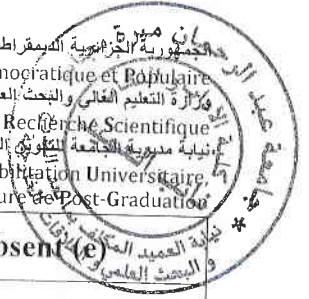 الجمهورية الجزائرية الديمقراط
mocratique et Populaire
وزارة التعليم العالي والبحث العل
Recherche Scientifique
نيابة مديرية الجامعة للتكوين ال
bilitation Universitaire
ure de Post-Graduation
bsent (e)
جامعة عبد الرحمان ميرة
نيابة العميد المكلف
و البحث العلمي و العلاقات